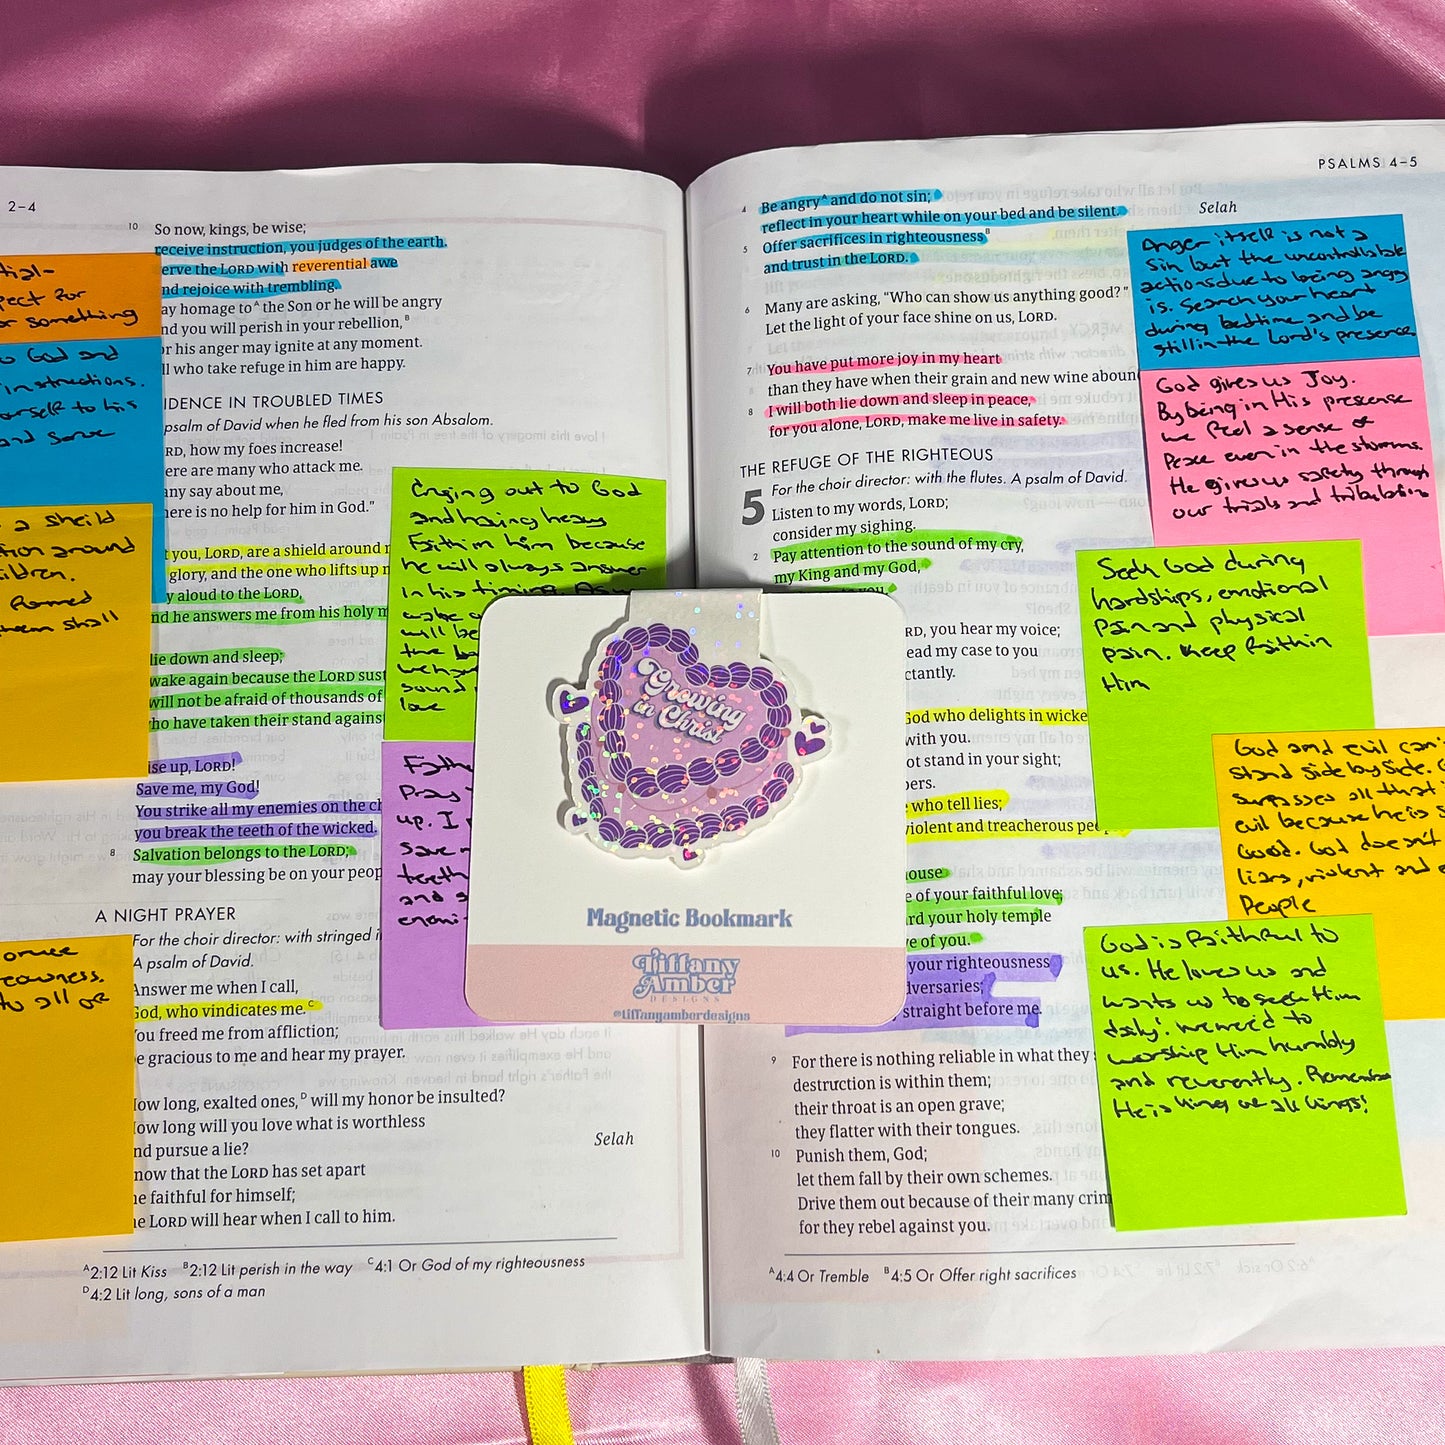 2–4
10 So now, kings, be wise;
receive instruction, you judges of the earth.
erve the LORD with reverential awe
nd rejoice with trembling.
ay homage to^A the Son or he will be angry
nd you will perish in your rebellion,^B
or his anger may ignite at any moment.
ll who take refuge in him are happy.
IDENCE IN TROUBLED TIMES
psalm of David when he fled from his son Absalom.
RD, how my foes increase!
ere are many who attack me.
any say about me,
here is no help for him in God."
t you, LORD, are a shield around
glory, and the one who lifts up
y aloud to the LORD,
nd he answers me from his holy
lie down and sleep;
wake again because the LORD
will not be afraid of thousands of
ho have taken their stand against
ise up, LORD!
Save me, my God!
You strike all my enemies on the
you break the teeth of the wicked.
8 Salvation belongs to the LORD;
may your blessing be on your
A NIGHT PRAYER
For the choir director: with stringed
A psalm of David.
Answer me when I call,
God, who vindicates me.^C
You freed me from affliction;
e gracious to me and hear my prayer.
How long, exalted ones,^D will my honor be insulted?
How long will you love what is worthless
nd pursue a lie?
Selah
now that the LORD has set apart
he faithful for himself;
he LORD will hear when I call to him.
^A2:12 Lit Kiss ^B2:12 Lit perish in the way ^C4:1 Or God of my righteousness
^D4:2 Lit long, sons of a man
tial-
pect for
or something
o God and
instructions.
ourself to his
and serve
a sheild
tion around
ildren.
them shall
to all of
Crying out to God
and having heavy
Faith in him because
he will always answer
in his timing.
will be
sound
love
Pray
up. I
save
teeth
and
PSALMS 4–5
4 Be angry^A and do not sin;
reflect in your heart while on your bed and be silent. Selah
5 Offer sacrifices in righteousness^B
and trust in the LORD.
6 Many are asking, "Who can show us anything good?"
Let the light of your face shine on us, LORD.
7 You have put more joy in my heart
than they have when their grain and new wine abound
8 I will both lie down and sleep in peace,
for you alone, LORD, make me live in safety.
THE REFUGE OF THE RIGHTEOUS
5 For the choir director: with the flutes. A psalm of David.
Listen to my words, LORD;
consider my sighing.
2 Pay attention to the sound of my cry,
my King and my God,
RD, you hear my voice;
ead my case to you
ctantly.
God who delights in
with you.
ot stand in your sight;
who tell lies;
violent and treacherous
ouse
e of your faithful love;
rd your holy temple
ve of you.
your righteousness
dversaries;
straight before me.
9 For there is nothing reliable in what they
destruction is within them;
their throat is an open grave;
they flatter with their tongues.
10 Punish them, God;
let them fall by their own schemes.
Drive them out because of their many
for they rebel against you.
^A4:4 Or Tremble ^B4:5 Or Offer right sacrifices
Anger itself is not a
sin but the uncontrollable
actions due to being angry
is. Search your heart
during bedtime and be
still in the Lord's presence
God gives us Joy.
By being in His presense
we feel a sense of
Peace even in the storms.
He gives us safety through
our trials and tribulation
Seek God during
hardships, emotional
Pain and physical
pain. Keep faith in
Him
God and evil can't
stand side by side.
surpasses all that
evil because he is
Good. God doesn't
liars, violent and
People
God is faithful to
us. He loves us and
wants us to seek Him
daily! we need to
worship Him humbly
and reverently. Remember
He is king of all kings!
Growing
in Christ
Magnetic Bookmark
Tiffany
Amber
DESIGNS
@tiffanyamberdesigns